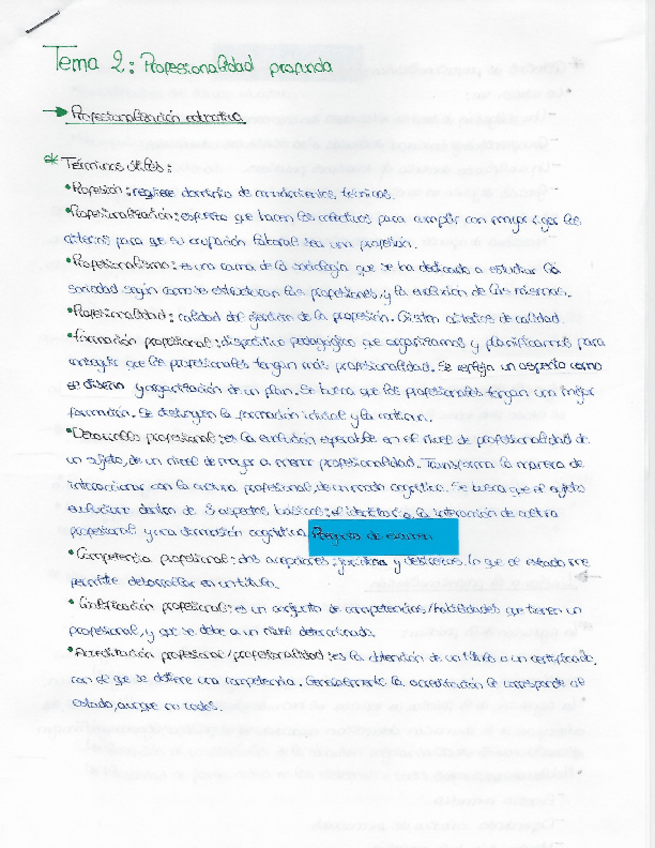 Tema 2: Profesionalidad profunda
→ Profesionalización educativa
* Términos útiles:
• Profesión: requiere dominio de conocimientos técnicos.
• Profesionalización: esfuerzo que hacen los colectivos para cumplir con mayor rigor los
criterios para que su ocupación laboral sea una profesión.
• Profesionalismo: es una rama de la sociología que se ha dedicado a estudiar la
sociedad según como se estructuran las profesiones, y la evolución de las mismas.
• Profesionalidad: calidad del ejercicio de la profesión. Existen criterios de calidad.
• Formación profesional: dispositivo pedagógico que organizamos y planificamos para
conseguir que los profesionales tengan más profesionalidad. Se refleja un aspecto como
el diseño y organización de un plan. Se busca que los profesionales tengan una mejor
formación. Se distinguen la formación inicial y la continua.
• Desarrollo profesional: es la evolución esperable en el nivel de profesionalidad de
un sujeto, de un nivel de mayor a menor profesionalidad. Transforma la manera de
interaccionar con la cultura profesional, de un modo cognitivo. Se busca que el sujeto
evolucione dentro de 3 aspectos básicos: el identitario, la interacción de cultura
profesional y una dimensión cognitiva. Pregunta de examen
• Competencia profesional: dos acepciones: jurídica y destrezas. Lo que el estado me
permite desarrollar en un título.
• Cualificación profesional: es un conjunto de competencias/habilidades que tienen un
profesional, y que se debe a un nivel determinado.
• Acreditación profesional/profesionalidad: es la obtención de un título o un certificado,
con el que se define una competencia. Generalmente la acreditación le corresponde al
estado, aunque no todos.